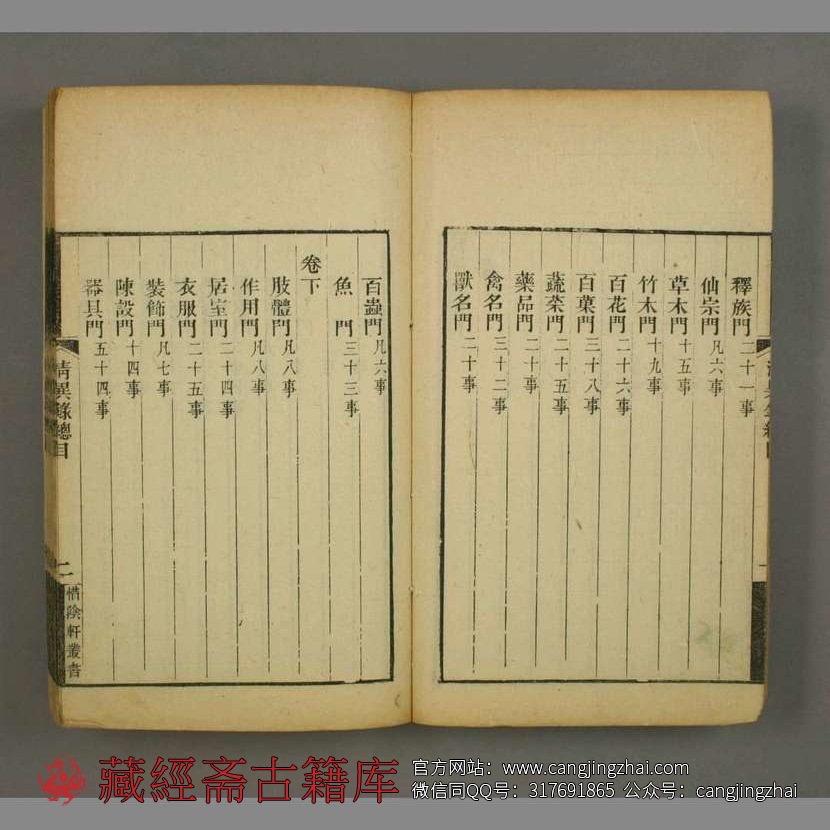 釋族門二十一事
仙宗門凡六事
草木門十五事
竹木門十九事
百花門二十六事
百菓門三十八事
蔬菜門二十五事
藥品門二十事
禽名門三十二事
獸名門二十事
百蟲門凡六事
魚門三十三事
卷下
肢體門凡八事
作用門凡八事
居室門二十四事
衣服門二十五事
裝飾門凡七事
陳設門十四事
器具門五十四事
清異錄總目
二
惜陰軒叢書
藏經斋古籍库
官方网站：www.cangjingzhai.com
微信同QQ号：317691865 公众号：cangjingzhai